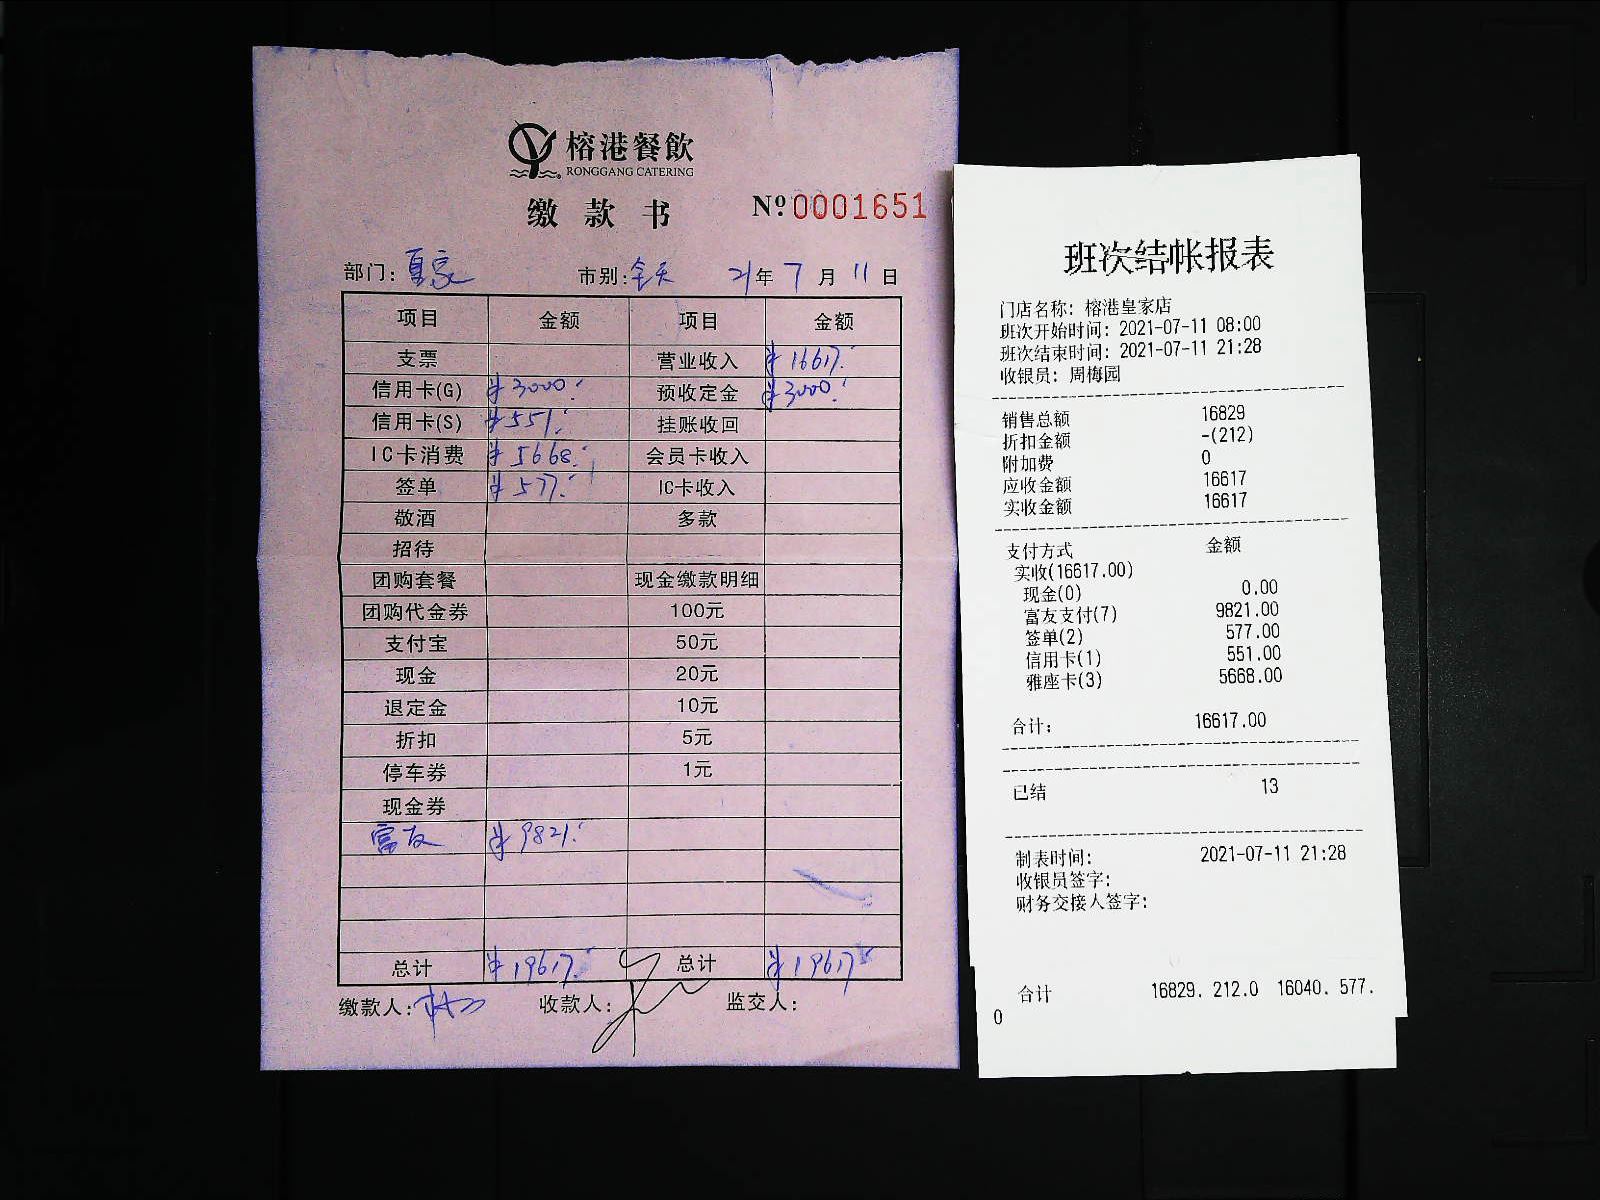 榕港餐飲
RONGGANG CATERING
缴款书 Nº 0001651
部门: 皇家 市别: 全天 21年 7月 11日
项目 金额 项目 金额
支票 营业收入 ¥16617.
信用卡(G) ¥3000. 预收定金 ¥3000.
信用卡(S) ¥551. 挂账收回
IC卡消费 ¥5668. 会员卡收入
签单 ¥577. IC卡收入
敬酒 多款
招待
团购套餐 现金缴款明细
团购代金券 100元
支付宝 50元
现金 20元
退定金 10元
折扣 5元
停车券 1元
现金券
富友 ¥9821.
总计 ¥19617. 总计 ¥19617
缴款人: 收款人: 监交人:
班次结帐报表
门店名称: 榕港皇家店
班次开始时间: 2021-07-11 08:00
班次结束时间: 2021-07-11 21:28
收银员: 周梅园
销售总额 16829
折扣金额 -(212)
附加费 0
应收金额 16617
实收金额 16617
支付方式 金额
实收(16617.00)
现金(0) 0.00
富友支付(7) 9821.00
签单(2) 577.00
信用卡(1) 551.00
雅座卡(3) 5668.00
合计: 16617.00
已结 13
制表时间: 2021-07-11 21:28
收银员签字:
财务交接人签字:
合计 16829. 212.0 16040. 577.
0